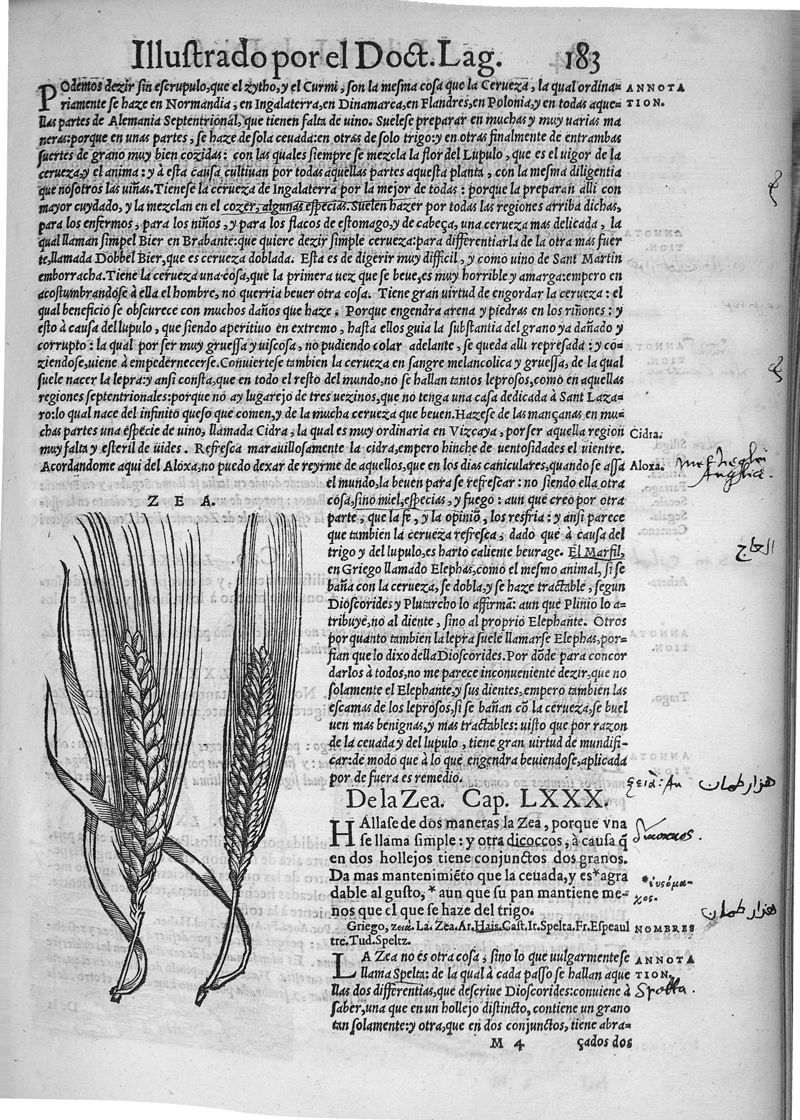 Illustrado por el Doct. Lag. 183
POdemos dezir sin escrupulo, que el zytho, y el Curmi, son la mesma cosa que la Cerueza, la qual ordina= ANNOTA
riamente se haze en Normandia, en Ingalaterra, en Dinamarca, en Flandres, en Polonia, y en todas aque= TION.
llas partes de Alemania Septentrional, que tienen falta de uino. Suelese preparar en muchas y muy uarias ma
neras: porque en unas partes, se haze de sola ceuada: en otras de solo trigo: y en otras finalmente de entrambas
suertes de grano muy bien cozidas: con las quales siempre se mezcla la flor del Lupulo, que es el uigor de la
cerueza, y el anima: y à esta causa cultiuan por todas aquellas partes aquesta planta, con la mesma diligentia
que nosotros las uiñas. Tienese la cerueza de Ingalaterra por la mejor de todas: porque la preparan alli con
mayor cuydado, y la mezclan en el cozer, algunas especias. Suelen hazer por todas las regiones arriba dichas,
para los enfermos, para los niños, y para los flacos de estomago, y de cabeça, una cerueza mas delicada, la
qual llaman simpel Bier en Brabante: que quiere dezir simple cerueza: para differentiarla de la otra mas fuer
te, llamada Dobbel Bier, que es cerueza doblada. Esta es de digerir muy difficil, y como uino de Sant Martin
emborracha. Tiene la cerueza una cosa, que la primera uez que se beue, es muy horrible y amarga: empero en
acostumbrandose à ella el hombre, no querria beuer otra cosa. Tiene gran uirtud de engordar la cerueza: el
qual beneficio se obscurece con muchos daños que haze. Porque engendra arena y piedras en los riñones: y
esto à causa del lupulo, que siendo aperitiuo en extremo, hasta ellos guia la substantia del grano ya dañado y
corrupto: la qual por ser muy gruessa y uiscosa, no pudiendo colar adelante, se queda alli represada: y co=
ziendose, uiene à empedernecerse. Conuiertese tambien la cerueza en sangre melancolica y gruessa, de la qual
suele nacer la lepra: y ansi consta, que en todo el resto del mundo, no se hallan tantos leprosos, como en aquellas
regiones septentrionales: porque no ay lugarejo de tres uezinos, que no tenga una casa dedicada à Sant Laza=
ro: lo qual nace del infinito queso que comen, y de la mucha cerueza que beuen. Hazese de las mançanas en mu=
chas partes una especie de uino, llamada Cidra, la qual es muy ordinaria en Vizcaya, por ser aquella region Cidra.
muy falta y esteril de uides. Refresca marauillosamente la cidra, empero hinche de uentosidades el uientre.
Acordandome aqui del Aloxa, no puedo dexar de reyrme de aquellos, que en los dias caniculares, quando se assa Aloxa.
el mundo, la beuen para se refrescar: no siendo ella otra
cosa, sino miel, especias, y fuego: aun que creo por otra
parte, que la fe, y la opiniõ, los resfria: y ansi parece
que tambien la cerueza refresca, dado que à causa del
trigo y del lupulo, es harto caliente beurage. El Marfil,
en Griego llamado Elephas, como el mesmo animal, si se
baña con la cerueza, se dobla, y se haze tractable, segun
Dioscorides y Plutarcho lo affirmã: aun que Plinio lo a=
tribuye, no al diente, sino al proprio Elephante. Otros
por quanto tambien la lepra suele llamarse Elephas, por=
fian que lo dixo della Dioscorides. Por dõde para concor
darlos à todos, no me parece inconueniente dezir, que no
solamente el Elephante, y sus dientes, empero tambien las
escamas de los leprosos, si se bañan cõ la cerueza, se buel
uen mas benignas, y mas tractables: uisto que por razon
de la ceuada y del lupulo, tiene gran uirtud de mundifi=
car: de modo que à lo que engendra beuiendose, aplicada
por de fuera es remedio.
ZEA.
De la Zea. Cap. LXXX.
HAllase de dos maneras la Zea, porque vna
se llama simple: y otra dicoccos, à causa q̃
en dos hollejos tiene conjunctos dos granos.
Da mas mantenimiẽto que la ceuada, y es*agra
dable al gusto, * aun que su pan mantiene me=
nos que el que se haze del trigo.
*ἐυσόμα-
χος.
هزار طمان
هزار طمان
العاج
Griego, ζειά. La. Zea. Ar. Hais. Cast. It. Spelta. Fr. Espeaul NOMBRES
tre. Tud. Speltz.
LA Zea no es otra cosa, sino lo que uulgarmente se ANNOTA
llama Spelta: de la qual à cada passo se hallan aque TION.
llas dos differentias, que descriue Dioscorides: conuiene à Spelta.
saber, una que en un hollejo distincto, contiene un grano
tan solamente: y otra, que en dos conjunctos, tiene abra=
M 4 çados dos